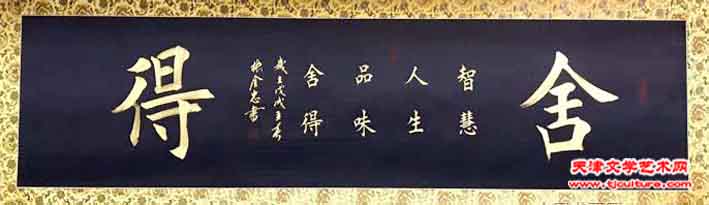 舍
智慧
人生
品味
舍得
歲在戊戌
得
天津文学艺术网
www.tjculture.com